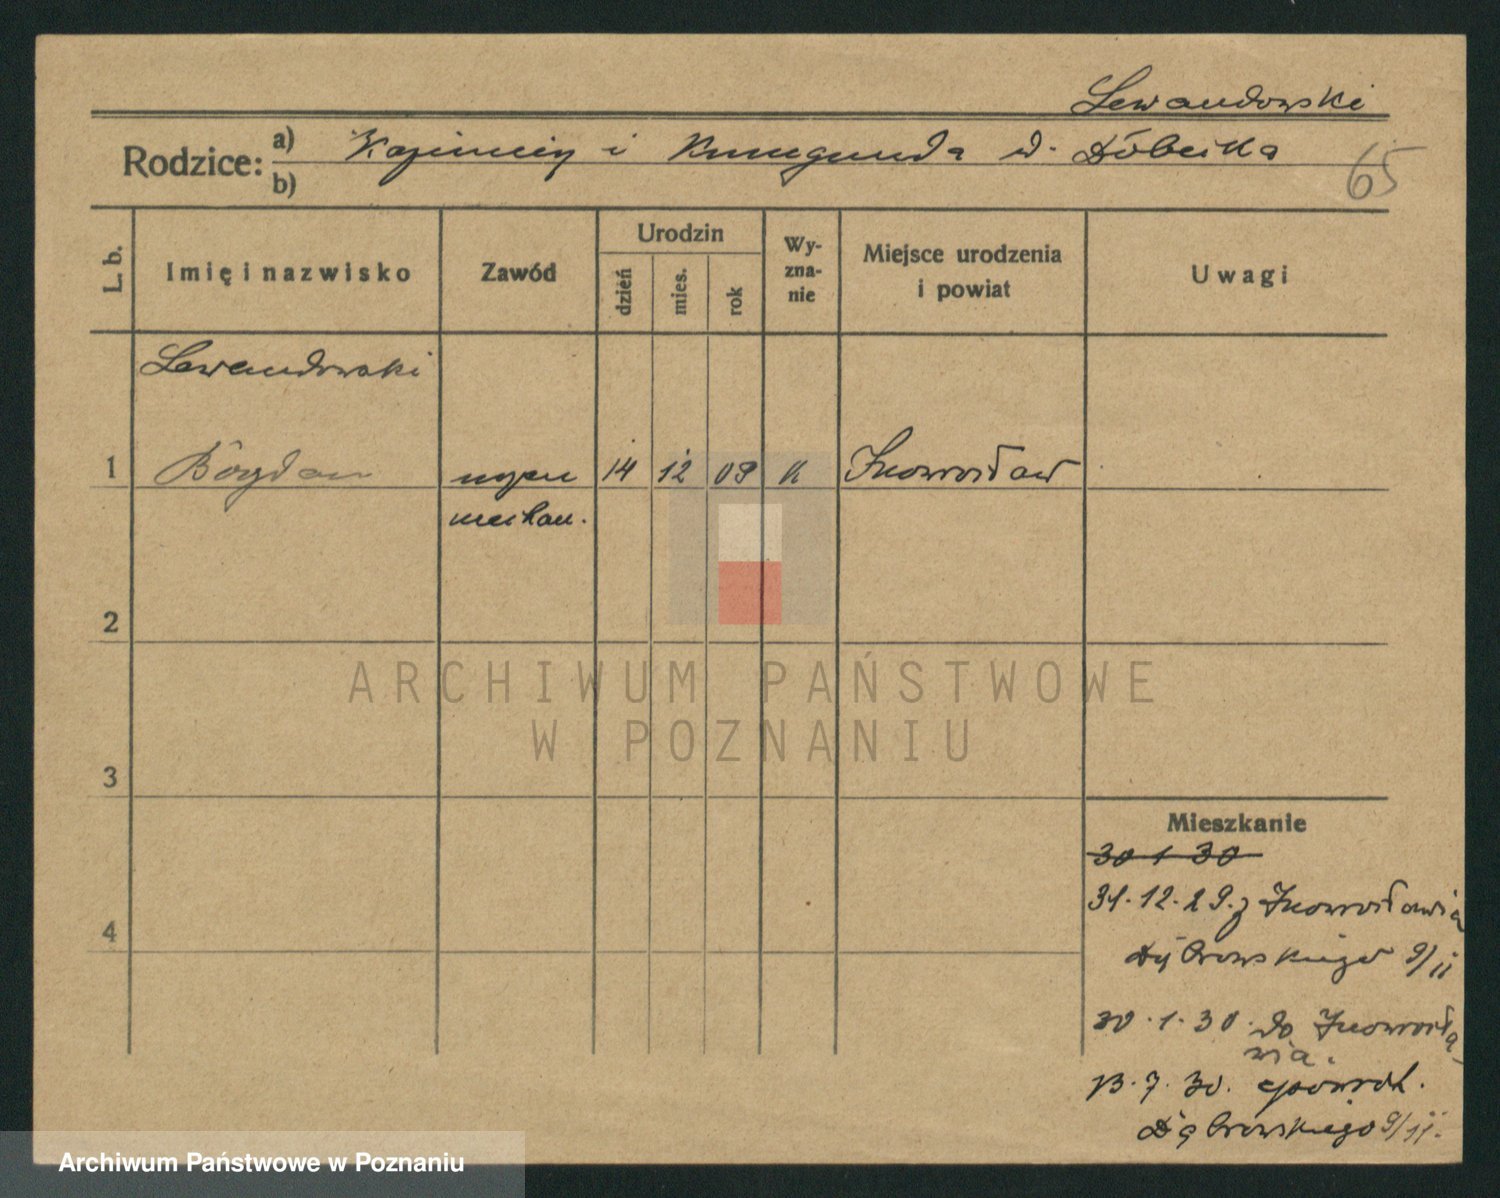 Lewandowski
Rodzice: a) Kazimierz i Kunegunda d. Dóbeika
b)
65
L. b.
Imię i nazwisko
Zawód
Urodzin
dzień
mies.
rok
Wy-
zna-
nie
Miejsce urodzenia
i powiat
Uwagi
Lewandowski
1 Bogdan 14 12 09 K Inowrocław
mechan.
2
ARCHIWUM PAŃSTWOWE
W POZNANIU
3
Mieszkanie
30 1 30
31.12.29. z Inowrocławia
4
Dąbrowskiego 9/II
30.1.30. do Inowrocła
wia.
13.7.30. spowrot.
Dąbrowskiego 9/II.
Archiwum Państwowe w Poznaniu